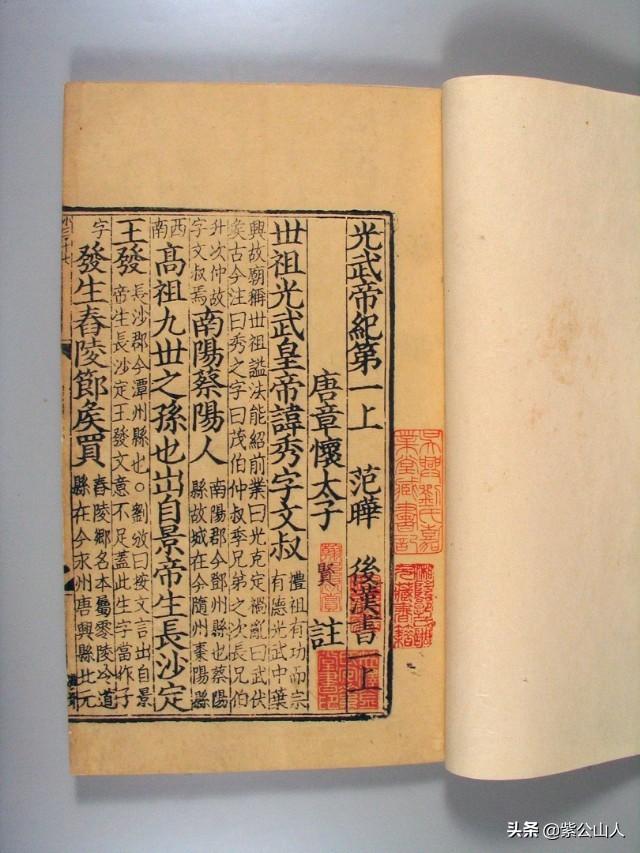 光武帝紀第一上 范曄 後漢書一上
唐章懷太子 賢 註
丗祖光武皇帝諱秀字文叔
禮祖有功而宗
有德光武中葉
興故廟稱丗祖謚法能紹前業曰光克定禍亂曰武伏
矦古今注曰秀之字曰茂伯仲叔季兄弟之次長兄伯
升次仲故
字文叔焉
南陽蔡陽人
南陽郡今鄧州縣也蔡陽
縣故城在今隨州棗陽縣
西
南
髙祖九丗之孫也出自景帝生長沙定
王發
長沙郡今潭州縣也○劉攽曰按文言出自景
帝生長沙定王發文意不足蓋此生字當作子
字
發生舂陵節矦買
舂陵鄉名本屬零陵泠道
縣在今永州唐興縣北元
吳興劉氏嘉
業堂藏書記
头条 @紫公山人